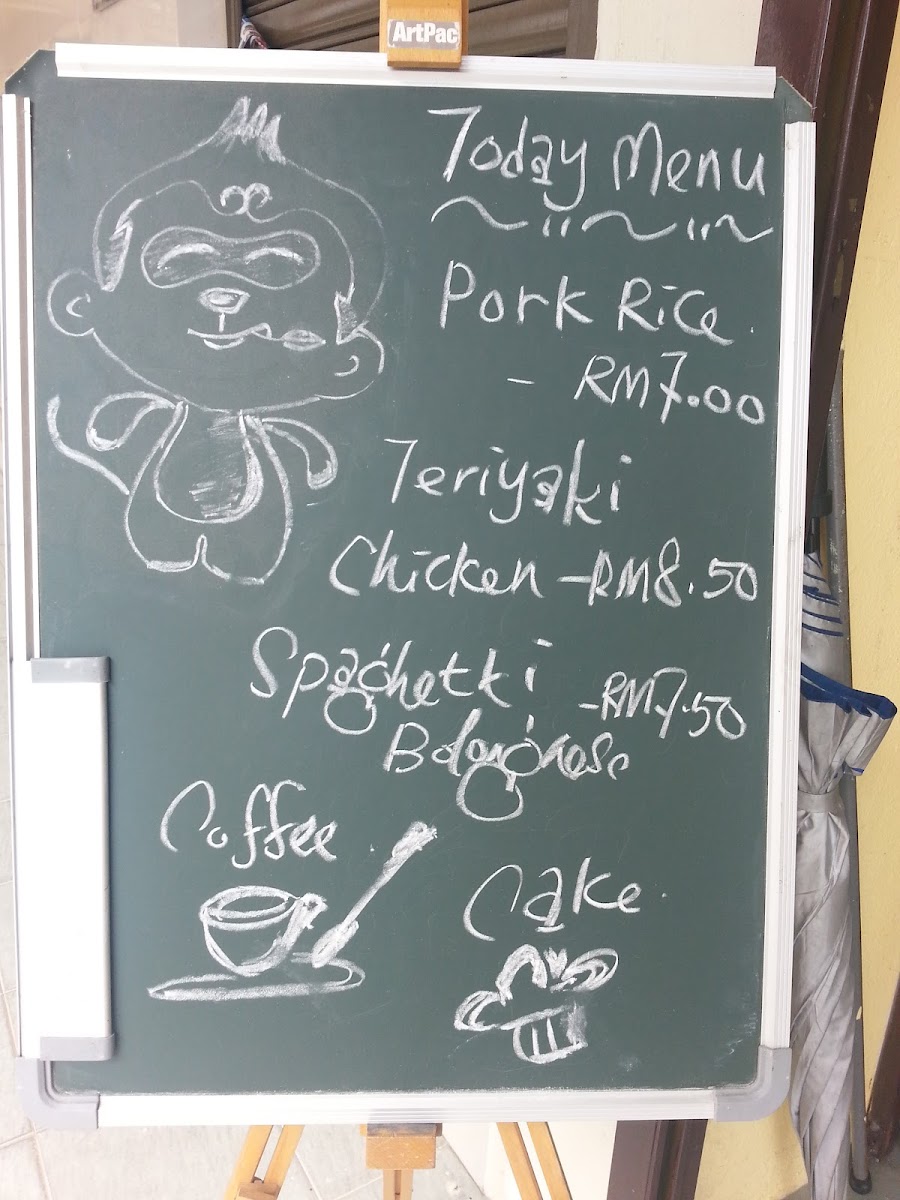 ArtPac
Today Menu
Pork Rice.
- RM7.00
Teriyaki
Chicken - RM8.50
Spaghetti - RM7.50
Bolongnese
Coffee
Cake.